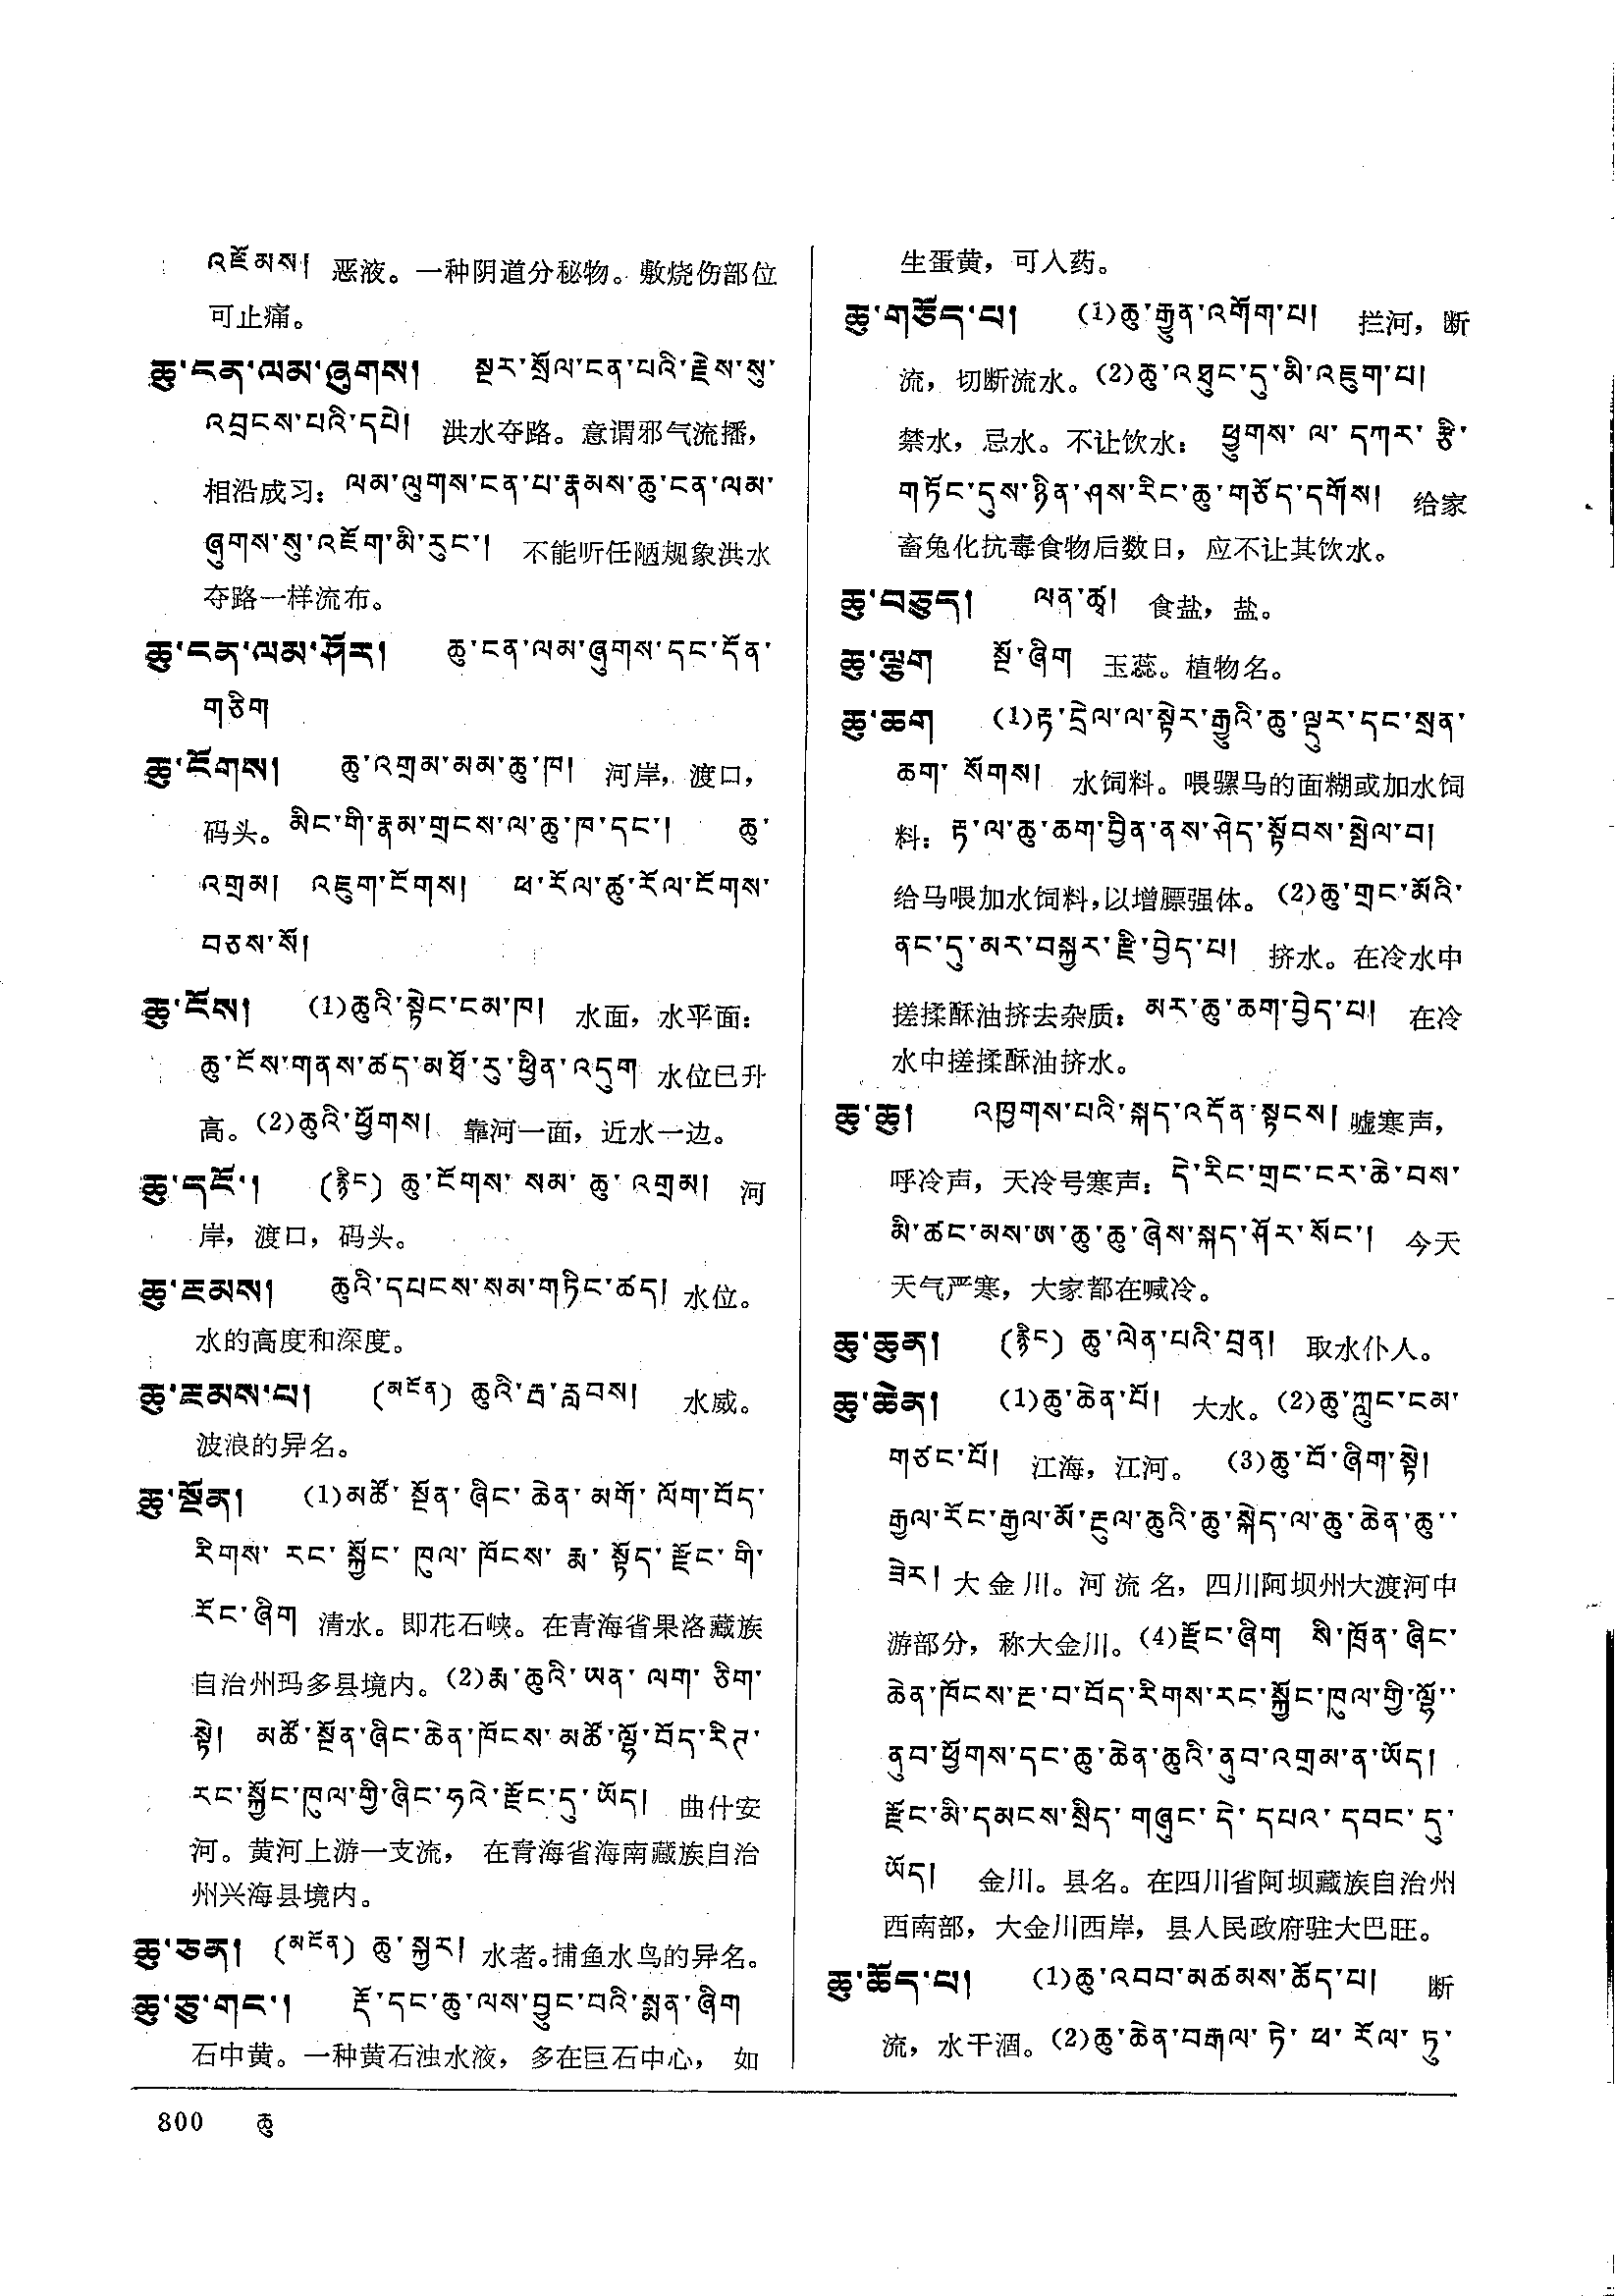 འཇོམས། 恶液。一种阴道分秘物。敷烧伤部位
可止痛。
ཆུ་ངན་ལམ་ཞུགས། སྔར་སྲོལ་ངན་པའི་རྗེས་སུ་
འབྲངས་པའི་དཔེ། 洪水夺路。意谓邪气流播，
相沿成习：ལམ་ལུགས་ངན་པ་རྣམས་ཆུ་ངན་ལམ་
ཞུགས་སུ་འཇོག་མི་རུང་། 不能听任陋规象洪水
夺路一样流布。
ཆུ་ངན་ལམ་ཤོར། ཆུ་ངན་ལམ་ཞུགས་དང་དོན་
གཅིག
ཆུ་ངོགས། ཆུ་འགྲམ་མམ་ཆུ་ཁ། 河岸，渡口，
码头。མིང་གི་རྣམ་གྲངས་ལ་ཆུ་ཁ་དང་། ཆུ་
འགྲམ། འཇུག་ངོགས། ཕ་རོལ་ཚུ་རོལ་ངོགས་
བཅས་སོ།
ཆུ་ངོས། (1)ཆུའི་སྟེང་ངམ་ཁ། 水面，水平面：
ཆུ་ངོས་གནས་ཚད་མཐོ་རུ་ཕྱིན་འདུག 水位已升
高。(2)ཆུའི་ཕྱོགས། 靠河一面，近水一边。
ཆུ་དངོ་། (རྙིང) ཆུ་ངོགས་ སམ་ ཆུ་ འགྲམ། 河
岸，渡口，码头。
ཆུ་ངམས། ཆུའི་དཔངས་སམ་གཏིང་ཚད། 水位。
水的高度和深度。
ཆུ་ངམས་པ། (མངོན) ཆུའི་རྦ་རླབས། 水威。
波浪的异名。
ཆུ་སྔོན། (1)མཚོ་ སྔོན་ ཞིང་ ཆེན་ མགོ་ ལོག་བོད་
རིགས་ རང་ སྐྱོང་ ཁུལ་ ཁོངས་ རྨ་ སྟོད་ རྫོང་ གི་
རོང་ཞིག 清水。即花石峡。在青海省果洛藏族
自治州玛多县境内。(2)རྨ་ ཆུའི་ ཡན་ ལག་ ཅིག་
སྟེ། མཚོ་སྔོན་ཞིང་ཆེན་ཁོངས་མཚོ་ལྷོ་བོད་རིཊ་
རང་སྐྱོང་ཁུལ་གྱི་ཞིང་ཧའེ་རྫོང་དུ་ཡོད། 曲什安
河。黄河上游一支流， 在青海省海南藏族自治
州兴海县境内。
ཆུ་ཅན། (མངོན) ཆུ་སྐྱར། 水者。捕鱼水鸟的异名。
ཆུ་ཅུ་གང་། རྡོ་དང་ཆུ་ལས་བྱུང་བའི་སྨན་ཞིག
石中黄。一种黄石浊水液，多在巨石中心， 如
生蛋黄，可入药。
ཆུ་གཅོད་པ། (1)ཆུ་རྒྱུན་འགོག་པ། 拦河，断
流，切断流水。(2)ཆུ་འཐུང་དུ་མི་འཇུག་པ།
禁水，忌水。不让饮水：ཕྱུགས་ ལ་ དཀར་ རྩི་
གཏོང་དུས་ཉིན་ཤས་རིང་ཆུ་གཅོད་དགོས། 给家
畜兔化抗毒食物后数日，应不让其饮水。
ཆུ་བཅུད། ལན་ཚྭ། 食盐，盐。
ཆུ་ལྕུག སྔོ་ཞིག 玉蕊。植物名。
ཆུ་ཆག (1)རྟ་དྲེལ་ལ་སྟེར་རྒྱུའི་ཆུ་ལྡུར་དང་སྲན་
ཆག་ སོགས། 水饲料。喂骡马的面糊或加水饲
料：རྟ་ལ་ཆུ་ཆག་བྱིན་ནས་ཤེད་སྟོབས་སྤེལ་བ།
给马喂加水饲料，以增膘强体。(2)ཆུ་གྲང་མོའི་
ནང་དུ་མར་བསྐྱར་རྫི་བྱེད་པ། 挤水。在冷水中
搓揉酥油挤去杂质：མར་ཆུ་ཆག་བྱེད་པ། 在冷
水中搓揉酥油挤水。
ཆུ་ཆུ། འཁྱགས་པའི་སྐད་འདོན་སྟངས། 嘘寒声，
呼冷声，天冷号寒声：དེ་རིང་གྲང་ངར་ཆེ་བས་
མི་ཚང་མས་ཨ་ཆུ་ཆུ་ཞེས་སྐད་ཤོར་སོང་། 今天
天气严寒，大家都在喊冷。
ཆུ་ཆུན། (རྙིང) ཆུ་ལེན་པའི་བྲན། 取水仆人。
ཆུ་ཆེན། (1)ཆུ་ཆེན་པོ། 大水。(2)ཆུ་ཀླུང་ངམ་
གཙང་པོ། 江海，江河。 (3)ཆུ་བོ་ཞིག་སྟེ།
རྒྱལ་རོང་རྒྱལ་མོ་རྔུལ་ཆུའི་ཆུ་སྐེད་ལ་ཆུ་ཆེན་ཆུ་་
ཟེར། 大金川。河流名，四川阿坝州大渡河中
游部分，称大金川。(4)རྫོང་ཞིག སི་ཁྲོན་ཞིང་
ཆེན་ཁོངས་རྔ་བ་བོད་རིགས་རང་སྐྱོང་ཁུལ་གྱི་ལྷོ་་
ནུབ་ཕྱོགས་དང་ཆུ་ཆེན་ཆུའི་ནུབ་འགྲམ་ན་ཡོད།
རྫོང་མི་དམངས་སྲིད་ གཞུང་ དེ་ དཔའ་ དབང་ དུ་
ཡོད། 金川。县名。在四川省阿坝藏族自治州
西南部，大金川西岸，县人民政府驻大巴旺。
ཆུ་ཆོད་པ། (1)ཆུ་འབབ་མཚམས་ཆོད་པ། 断
流，水干涸。(2)ཆུ་ཆེན་བརྒལ་ ཏེ་ ཕ་ རོལ་ ཏུ་
800 ཆུ